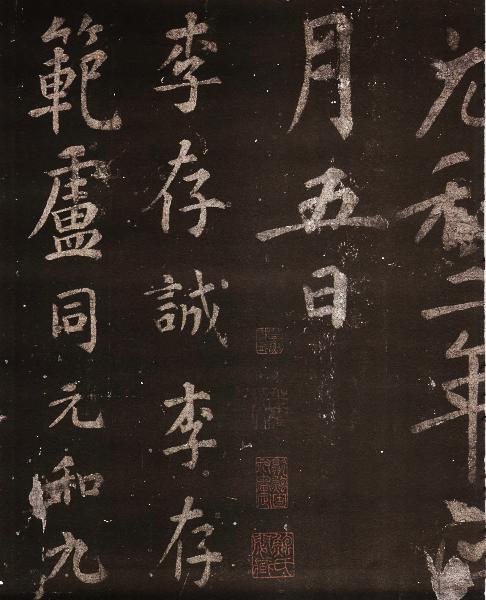 元和二年
月五日
李存誠李存
範盧同元和九